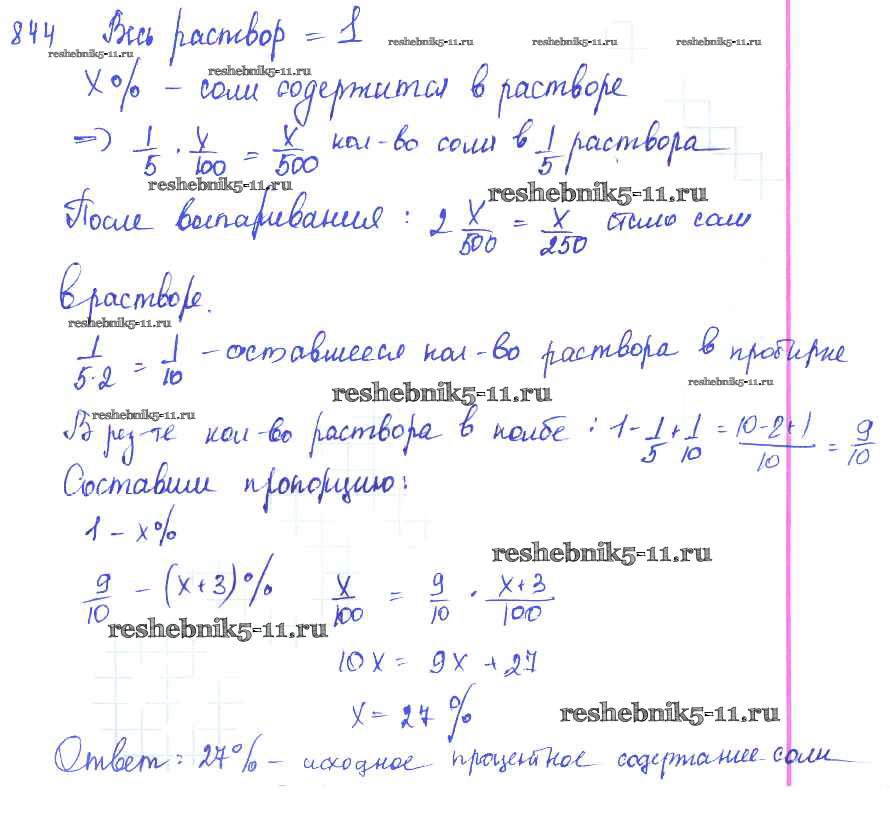 844 Весь раствор = 1
reshebnik5-11.ru reshebnik5-11.ru reshebnik5-11.ru reshebnik5-11.ru
reshebnik5-11.ru
x% - соли содержится в растворе
=> 1/5 · x/100 = x/500 кол-во соли в 1/5 раствора
reshebnik5-11.ru reshebnik5-11.ru
После выпаривания: 2 x/500 = x/250 стало соли
в растворе.
reshebnik5-11.ru
1/5·2 = 1/10 - оставшееся кол-во раствора в пробирке
reshebnik5-11.ru reshebnik5-11.ru
reshebnik5-11.ru
В рез-те кол-во раствора в колбе: 1 - 1/5 + 1/10 = 10-2+1/10 = 9/10
Составим пропорцию:
1 - x%
reshebnik5-11.ru
9/10 - (x+3)% x/100 = 9/10 · x+3/100
reshebnik5-11.ru
10x = 9x + 27
x = 27%
reshebnik5-11.ru
Ответ: 27% - исходное процентное содержание соли